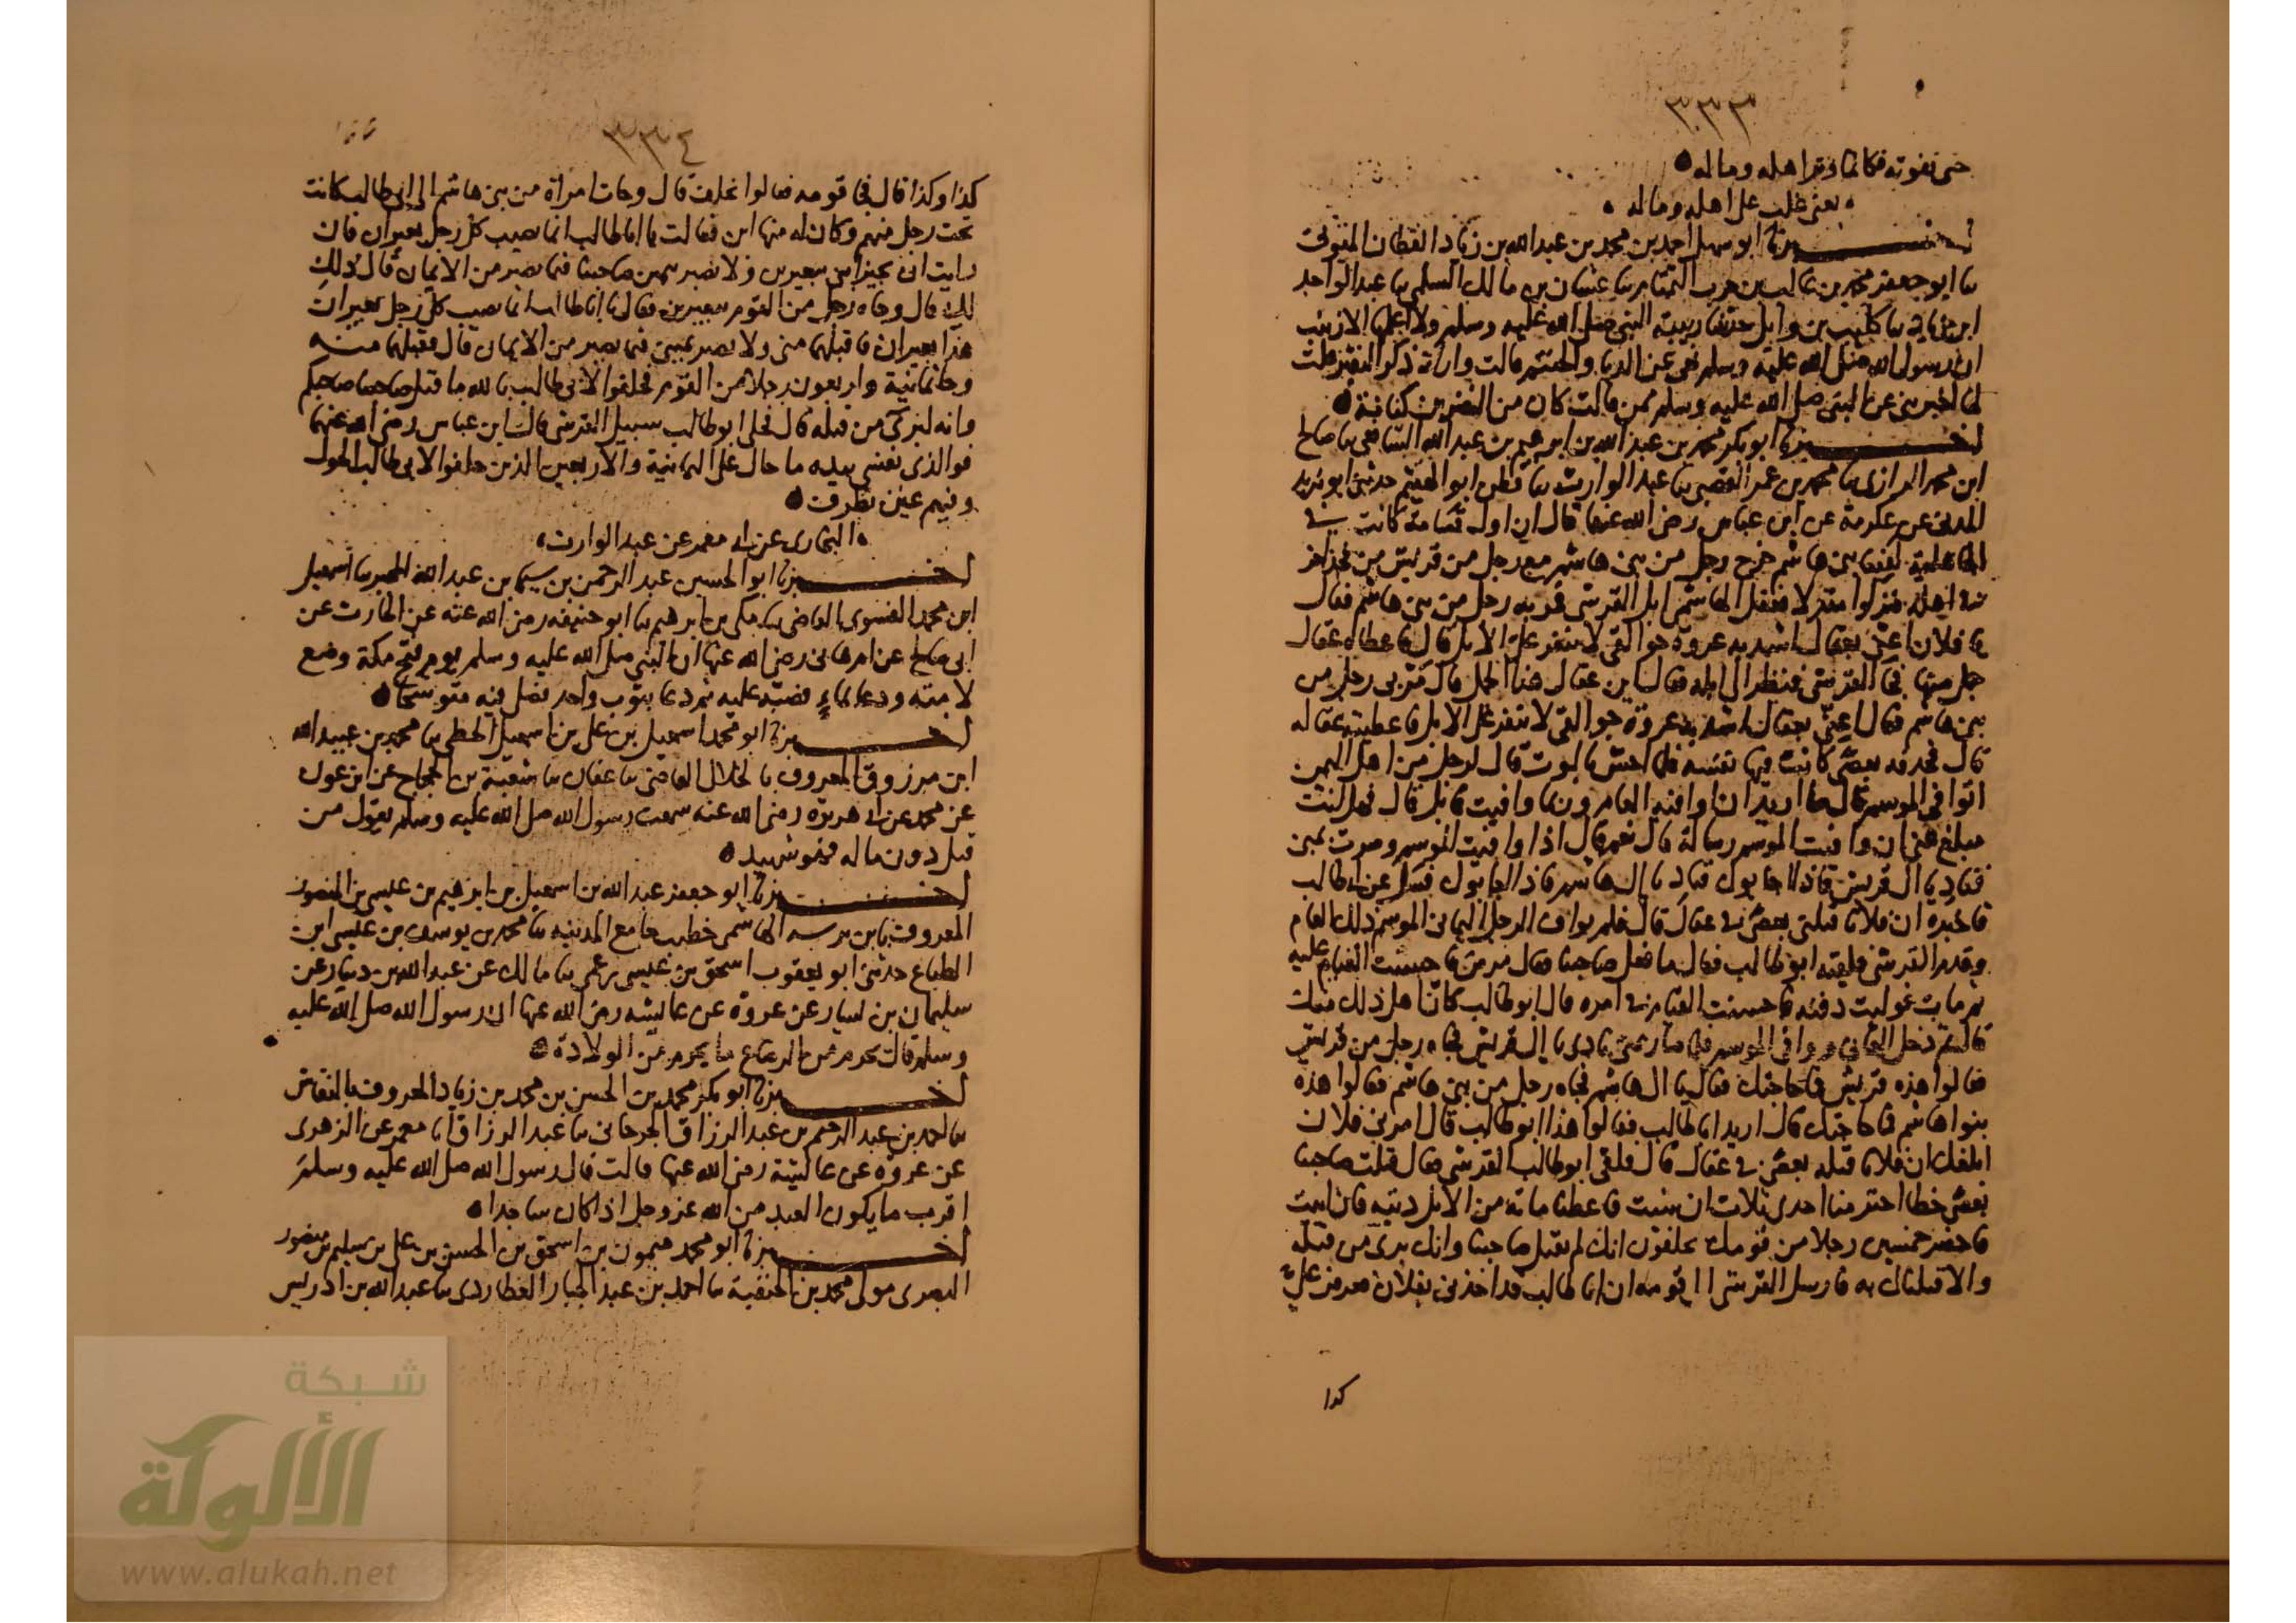 ٣٣٣
حتى تفوته فكانما وتر اهله وماله
يعني غلب على اهله وماله
اخبرنا ابو سهل احمد بن محمد بن عبدالله بن زياد القطان المتوثي
ثنا ابو جعفر محمد بن غالب بن حرب التمتام ثنا غسان بن مالك السلمي ثنا عبد الواحد
ابن زياد ثنا كليب بن وايل حدثتنا ربيبة النبي صلى الله عليه وسلم ولا اعلمها الا زينب
ان رسول الله صلى الله عليه وسلم نهى عن الدبا والحنتم قالت واراه ذكر النقير قلت
لها اخبريني عن النبي صلى الله عليه وسلم ممن قالت كان من النضر بن كنانة
اخبرنا ابو بكر محمد بن عبد الله بن ابرهيم بن عبد الله الشافعي ثنا صالح
ابن محمد الرازي ثنا محمد بن عمر القصبي ثنا عبد الوارث ثنا قطن ابو الهيثم حدثني ابو يزيد
المدني عن عكرمة عن ابن عباس رضي الله عنها قال ان اول قسامة كانت في
الجاهلية لفينا بني هاشم خرج رجل من بني هاشم مع رجل من قريش من فخذ اخر
في اهله فنزلوا منزلا فعقل الهاشمي ابل القرشي فمر به رجل من بني هاشم فقال
يا فلان اغثني بعقال اشد به عروة جوالقي لا تنفر علي الابل قال فاعطاه عقال
جمل منها فجا القرشي فنظر الى ابله فقال اين عقال هذا الجمل قال مر بي رجل من
بني هاشم فقال اغثني بعقال اشد به عروة جوالقي لا تنفر علي الابل فاعطيته عقاله
قال فحذفه بعصى كانت فيها نفسه فلما احس بالموت قال لرجل من اهل اليمن
اتوافي الموسم قال ما اريد ان اوافيه العام وربما وافيت قابل قال فهل انت
مبلغ عني ان وافيت الموسم رسالة قال نعم قال اذا وافيت الموسم وصرت بمنى
فناد يا ال قريش فاذا اجابوك فناد يا ال هاشم فاذا اجابوك فسل عن ابي طالب
فاخبره ان فلانا قتلني بعصى في عقال قال فلم يواف الرجل اليماني الموسم ذلك العام
وقدم القرشي فلقيه ابو طالب فقال ما فعل صاحبنا فقال مرض فاحسنت القيام عليه
ثم مات فوليت دفنه فاحسنت القيام في امره قال ابو طالب كان اهل ذلك منك
قال ثم دخل اليماني ووافى الموسم فلما صار بمنى نادى يا ال قريش فجاه رجل من قريش
فقالوا هذه قريش فما حاجتك فقال يا ال هاشم فجاه رجل من بني هاشم فقالوا هذه
بنوا هاشم فما حاجتك قال اريد ابا طالب فقالوا هذا ابو طالب قال امرني فلان
ابلغك ان فلانا قتله بعصى في عقال قال فلقي ابو طالب القرشي فقال قتلت صاحبنا
بعصى خطا اختر منا احدى ثلاث ان شيت فاعطنا ماية من الابل ديته فان ابيت
فاحضر خمسين رجلا من قومك يحلفون انك لم تقتل صاحبنا وانك برئ من قتله
والا قتلناك به فارسل القرشي الى قومه ان ابا طالب قد اخذني بفلان فعرض علي
كذا
٣٣٤
كذا وكذا قال فجا قومه فقالوا نحلف قال وجات امراة من بني هاشم الى ابي طالب كانت
تحت رجل منهم وكان له منها ابن فقالت يا ابا طالب انما يصيب كل رجل بعيران فان
رايت ان تجيز ابني ببعيرين ولا تصبر يمين صاحبنا فيما تصبر من الايمان قال ذلك
لك قال وجاه رجل من القوم ببعيرين فقال يا ابا طالب انما يصيب كل رجل بعيران
هذا بعيران فاقبلهما مني ولا تصبر يميني فيما تصبر من الايمان قال فقبلهما منه
وجا ثمانية واربعون رجلا من القوم فحلفوا لابي طالب بالله ما قتل صاحبنا صاحبكم
وانه لبرئ من قتله قال فخلى ابو طالب سبيل القرشي قال ابن عباس رضي الله عنهما
فوالذي نفسي بيده ما حال على الثمانية والاربعين الذين حلفوا لابي طالب الحول
وفيهم عين تطرف
البخاري عن ابي معمر عن عبد الوارث
اخبرنا ابو الحسين عبد الرحمن بن سيما بن عبد الله المجبر ثنا اسمعيل
ابن محمد الفسوي القاضي ثنا مكي بن ابرهيم ثنا ابو حنيفه رضي الله عنه عن الحارث عن
ابي صالح عن ام هاني رضي الله عنها ان النبي صلى الله عليه وسلم يوم فتح مكة وضع
لامته ودعا بماء فصبه عليه ثم دعا بثوب واحد فصلى فيه متوشحا
اخبرنا ابو محمد اسمعيل بن علي بن اسمعيل الخطبي ثنا محمد بن عبيد الله
ابن مرزوق المعروف بالخلال القاضي ثنا عفان ثنا شعبة بن الحجاج عن ابن عون
عن محمد عن ابي هريرة رضي الله عنه سمعت رسول الله صلى الله عليه وسلم يقول من
قتل دون ماله فهو شهيد
اخبرنا ابو جعفر عبد الله بن اسمعيل بن ابرهيم بن عيسى بن المنصور
المعروف بابن بريه الهاشمي خطيب جامع المدينه ثنا محمد بن يوسف بن عيسى ابن
الطباع حدثني ابو يعقوب اسحق بن عيسى عمي ثنا مالك عن عبد الله بن دينار عن
سليمان بن يسار عن عروة عن عايشه رضي الله عنها ان رسول الله صلى الله عليه
وسلم قال يحرم من الرضاع ما يحرم من الولادة
اخبرنا ابو بكر محمد بن الحسن بن محمد بن زياد المعروف بالنقاش
ثنا احمد بن عبد الرحيم بن عبد الرزاق الجرجاني ثنا عبد الرزاق انا معمر عن الزهري
عن عروه عن عايشة رضي الله عنها قالت قال رسول الله صلى الله عليه وسلم
اقرب ما يكون العبد من الله عز وجل اذا كان ساجدا
اخبرنا ابو محمد ميمون بن اسحق بن الحسن بن علي بن سليم بن منصور
البصري مولى محمد بن الحنفية ثنا احمد بن عبد الجبار العطاردي ثنا عبد الله بن ادريس
شبكة
الألوكة
www.alukah.net